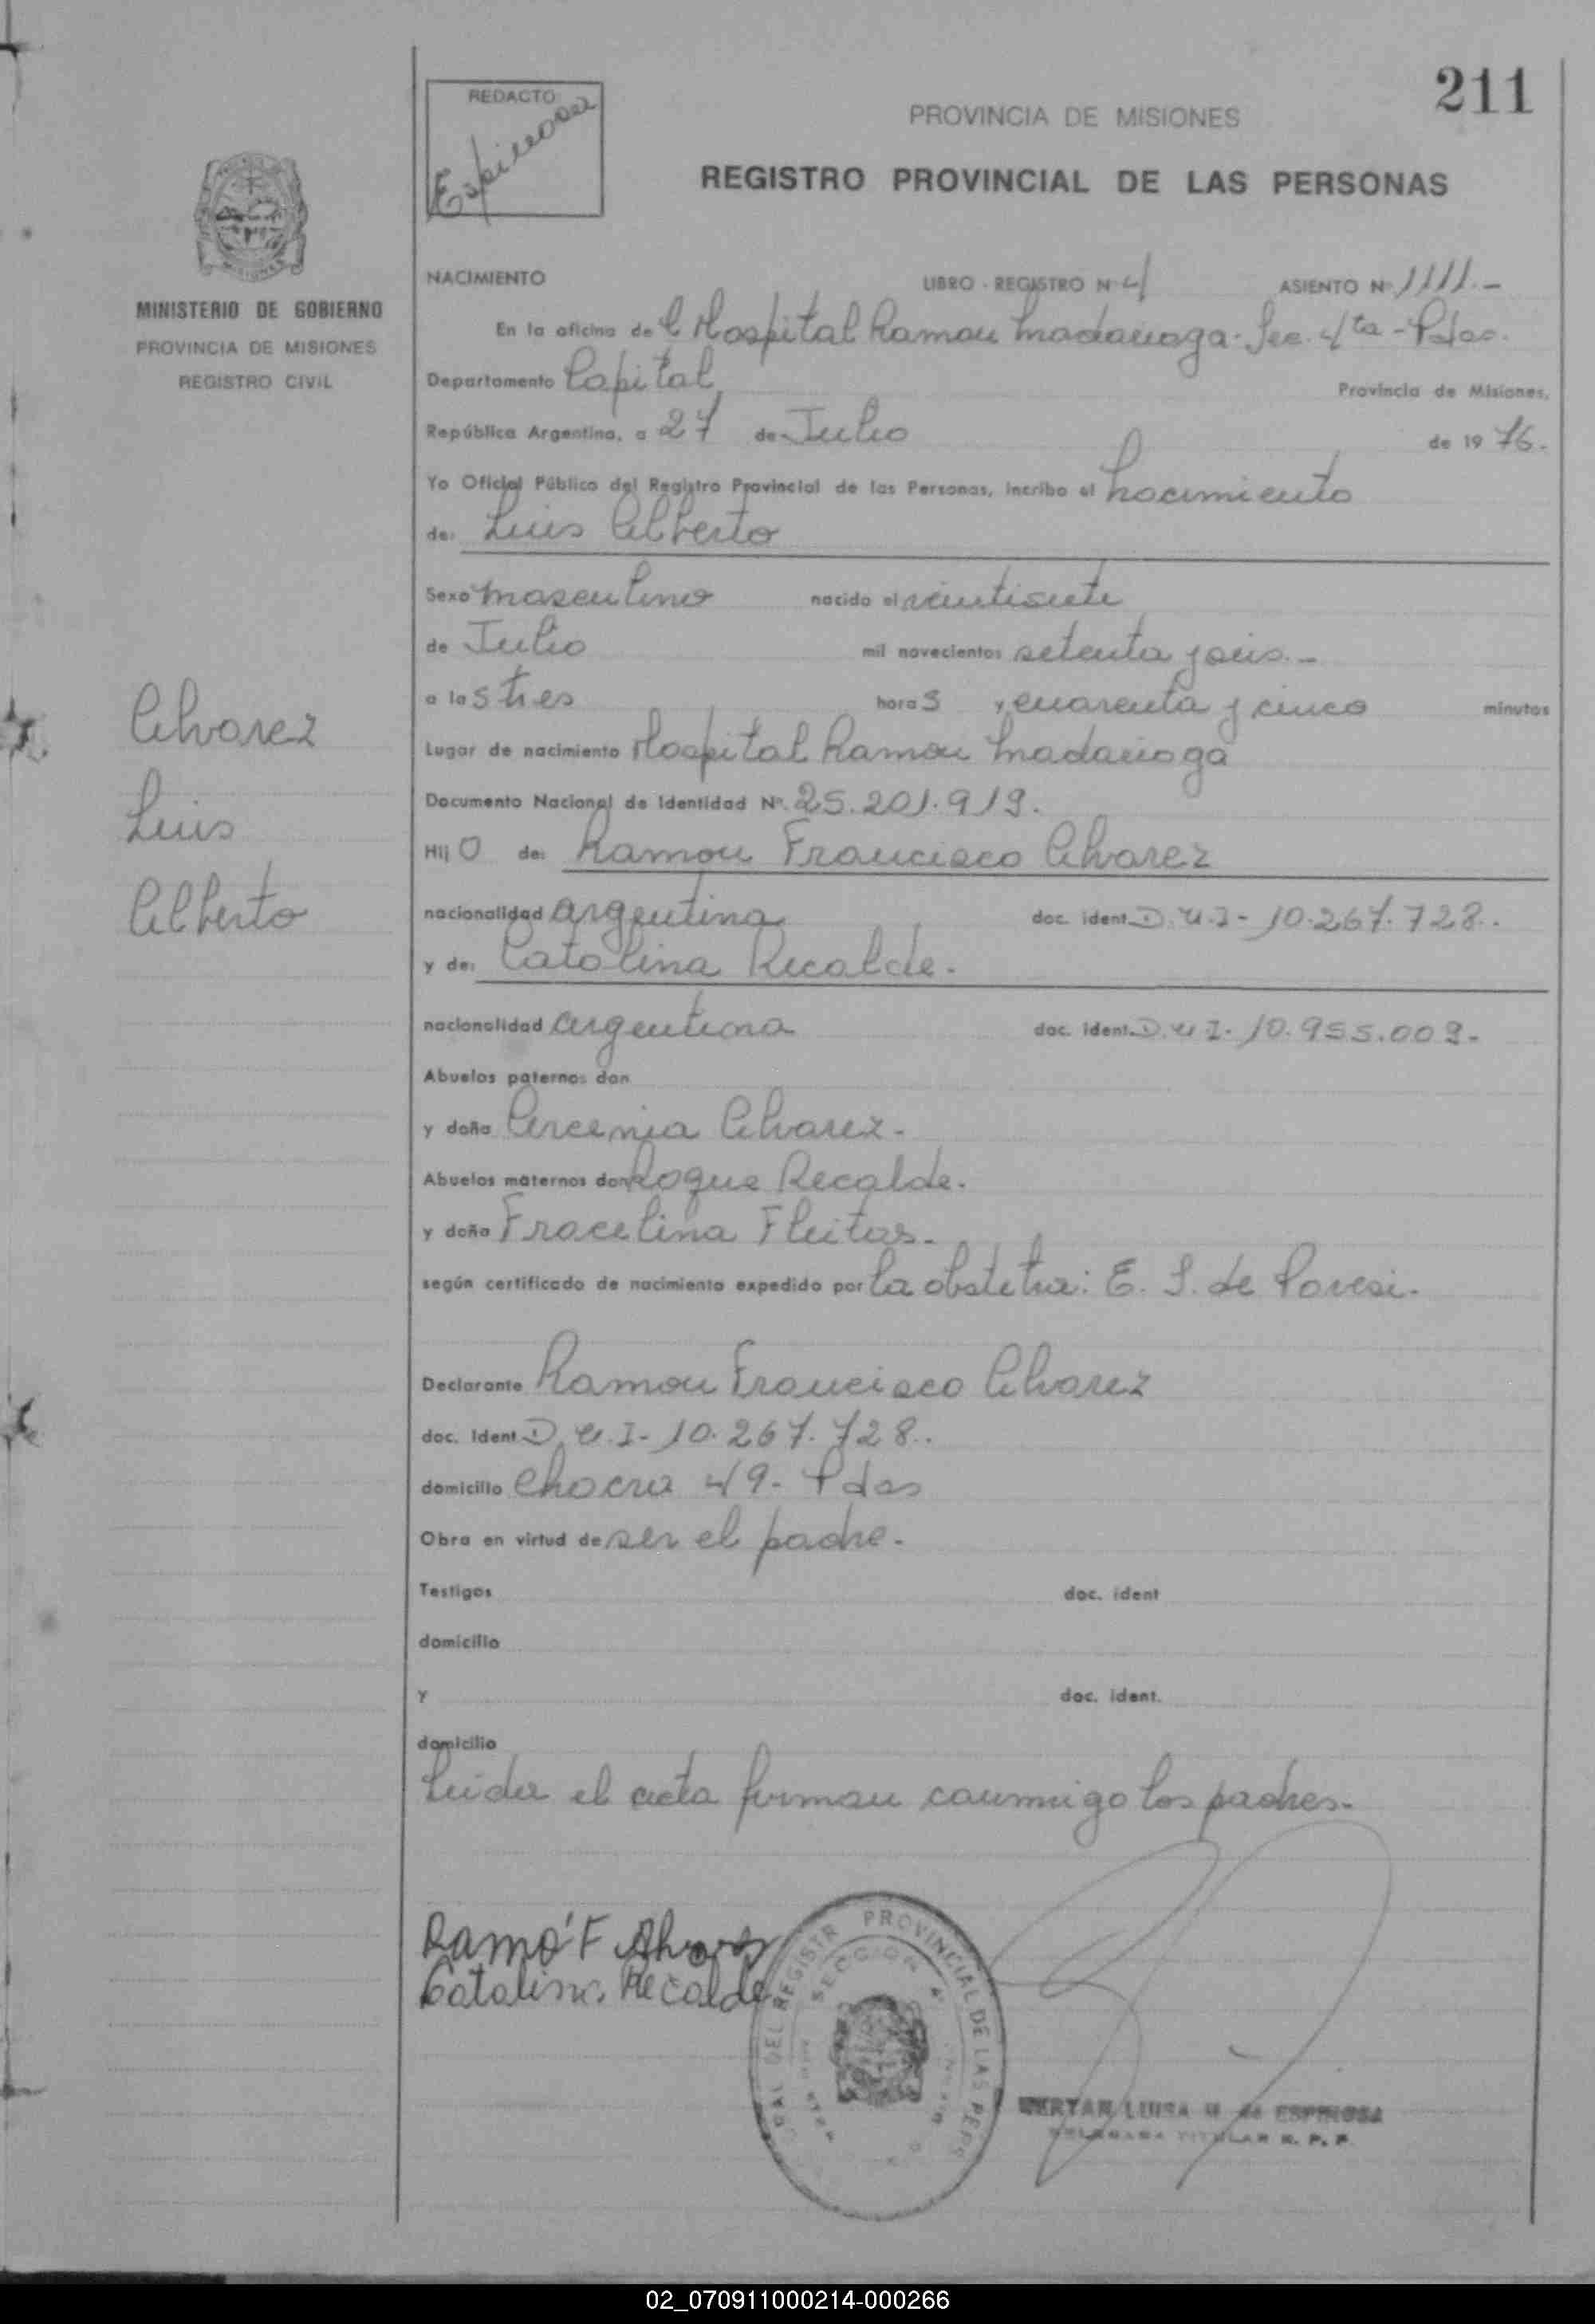 211
REDACTO
Espinosa
PROVINCIA DE MISIONES
REGISTRO PROVINCIAL DE LAS PERSONAS
MISIONES
MINISTERIO DE GOBIERNO
PROVINCIA DE MISIONES
REGISTRO CIVIL
NACIMIENTO LIBRO - REGISTRO Nº 4 ASIENTO Nº 1111.-
En la oficina de l Hospital Ramon Madariaga - Sec. 4ta - Pdas.
Departamento Capital Provincia de Misiones,
República Argentina, a 27 de Julio de 19 76.
Yo Oficial Público del Registro Provincial de las Personas, incribo el nacimiento
de: Luis Alberto
Sexo masculino nacido el veintisiete
de Julio mil novecientos setenta y seis.-
a las tres horas y cuarenta y cinco minutos
Lugar de nacimiento Hospital Ramon Madariaga
Documento Nacional de Identidad Nº. 25.201.919.
Hijo de: Ramon Francisco Alvarez
nacionalidad argentina doc. ident. D.U.I- 10.267.728.
y de: Catalina Recalde.
nacionalidad argentina doc. ident. D.U.I- 10.955.009-
Abuelos paternos don
y doña Arcenia Alvarez.
Abuelos maternos don Roque Recalde.
y doña Fracelina Fleitas.
según certificado de nacimiento expedido por la obstetra: E. S. de
Declarante Ramon Francisco Alvarez
doc. Ident D.U.I- 10.267.728.
domicilio chacra 49- Pdas
Obra en virtud de ser el padre.
Testigos doc. ident
domicilio
y doc. ident.
domicilio
Leida el acta firman conmigo los padres-
Alvarez
Luis
Alberto
Ramó F Alvarez
Catalina Recalde
REGISTR PROVINCIAL DE LAS PERS
SECCION 4
LUISA M. de ESPINOSA
DELEGADA TITULAR R. P. P.
02_070911000214-000266